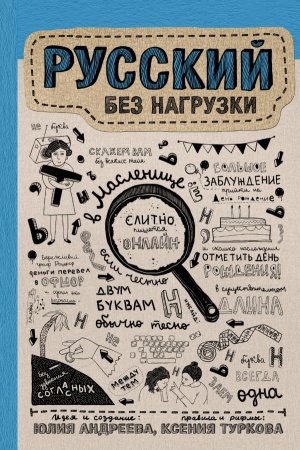 РУССКИЙ
БЕЗ НАГРУЗКИ
не буква
СКАЖЕМ ВАМ
без всяких тайн
Ь
в Масленице
БОЛЬШОЕ
ЗАБЛУЖДЕНИЕ
прийти на
день рождение
СЛИТНО
пишется
ОНЛАЙН
деньги перевел
в ОФШОР
если честно
ДВУМ
БУКВАМ
обычно тесно
Н
ОТМЕТИТЬ ДЕНЬ
РОЖДЕНИЯ!
в существительном
ДЛИНА
Н
буква Н
ВСЕГДА
одна
без
СОГЛАСНЫХ
между
тем
идея и создание:
ЮЛИЯ АНДРЕЕВА,
правила и рифмы:
КСЕНИЯ ТУРКОВА